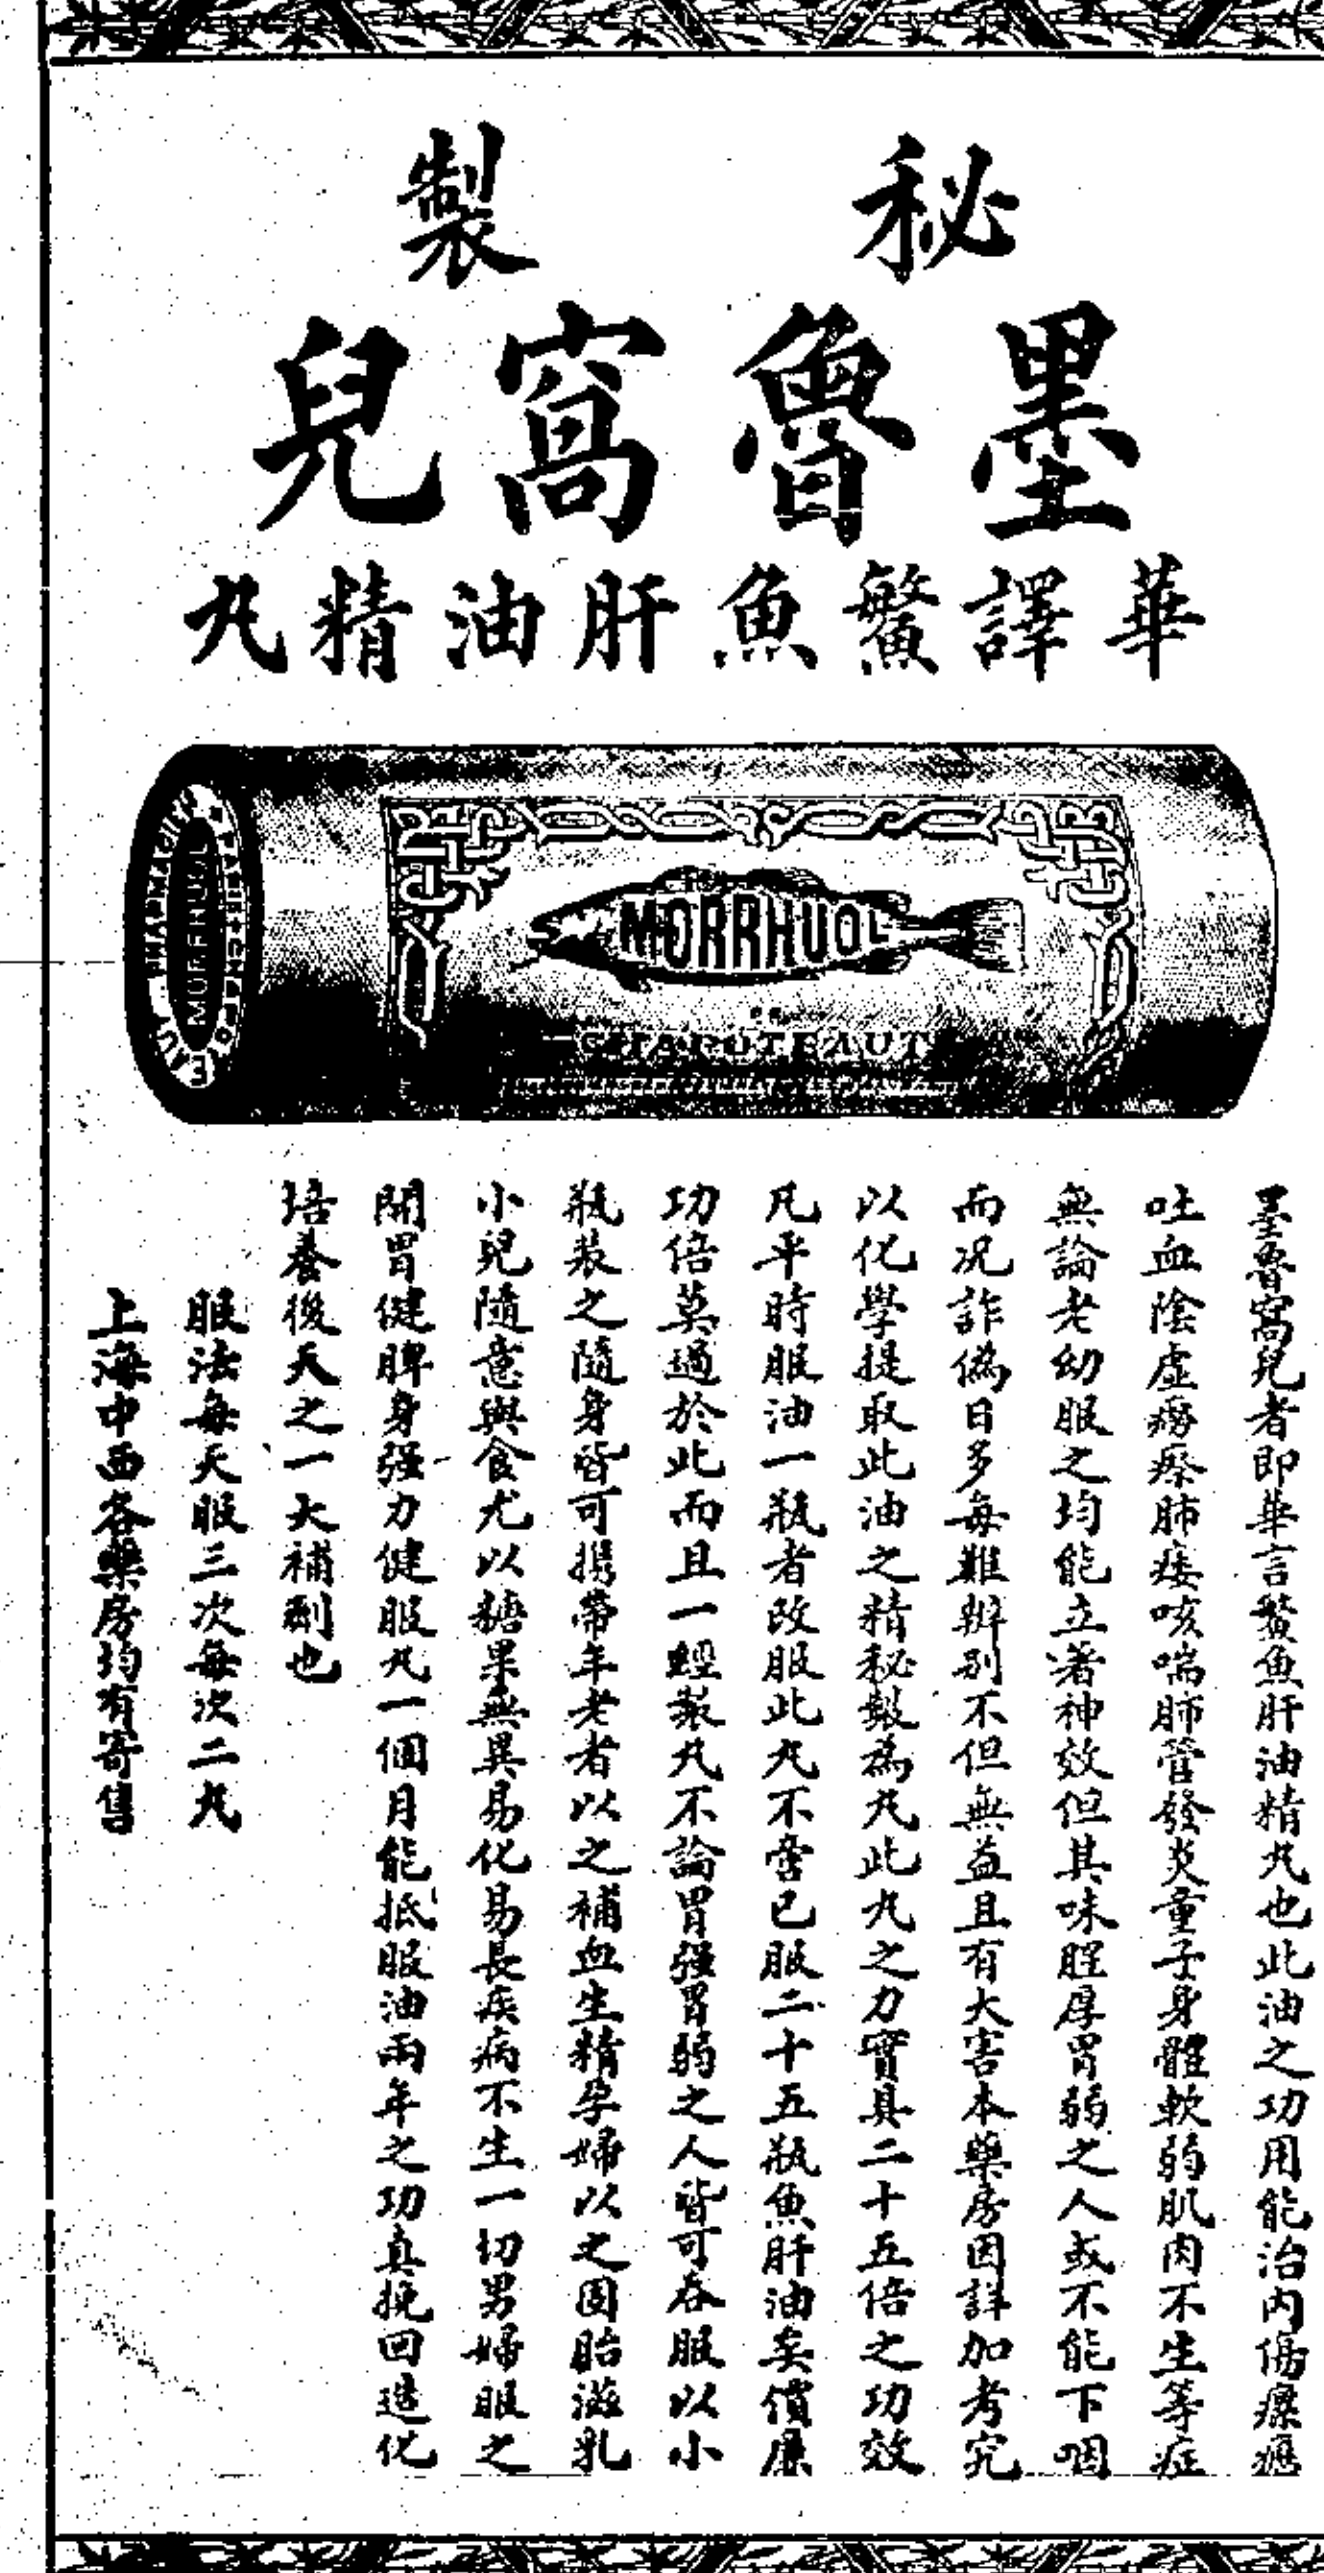 秘製
墨魯窩兒
華譯鰵魚肝油精丸
MORRHUOL
CHAPOTEAUT
MORRHUOL
墨魯窩兒者即華言鰵魚肝油精丸也此油之功用能治內傷瘰癧
吐血陰虛癆瘵肺痿咳喘肺管發炎童子身體軟弱肌肉不生等症
無論老幼服之均能立著神效但其味腥厚胃弱之人或不能下咽
而况詐偽日多每難辨別不但無益且有大害本藥房因詳加考究
以化學提取此油之精秘製為丸此丸之力實具二十五倍之功效
凡平時服油一瓶者改服此丸不啻已服二十五瓶魚肝油矣價廉
功倍莫過於此而且一經製丸不論胃强胃弱之人皆可吞服以小
瓶裝之隨身皆可攜帶年老者以之補血生精孕婦以之固胎滋乳
小兒隨意與食尤以糖果無異易化易長疾病不生一切男婦服之
開胃健脾身强力健服丸一個月能抵服油兩年之功真挽回造化
培養後天之一大補劑也
服法每天服三次每次二丸
上海中西各藥房均有寄售